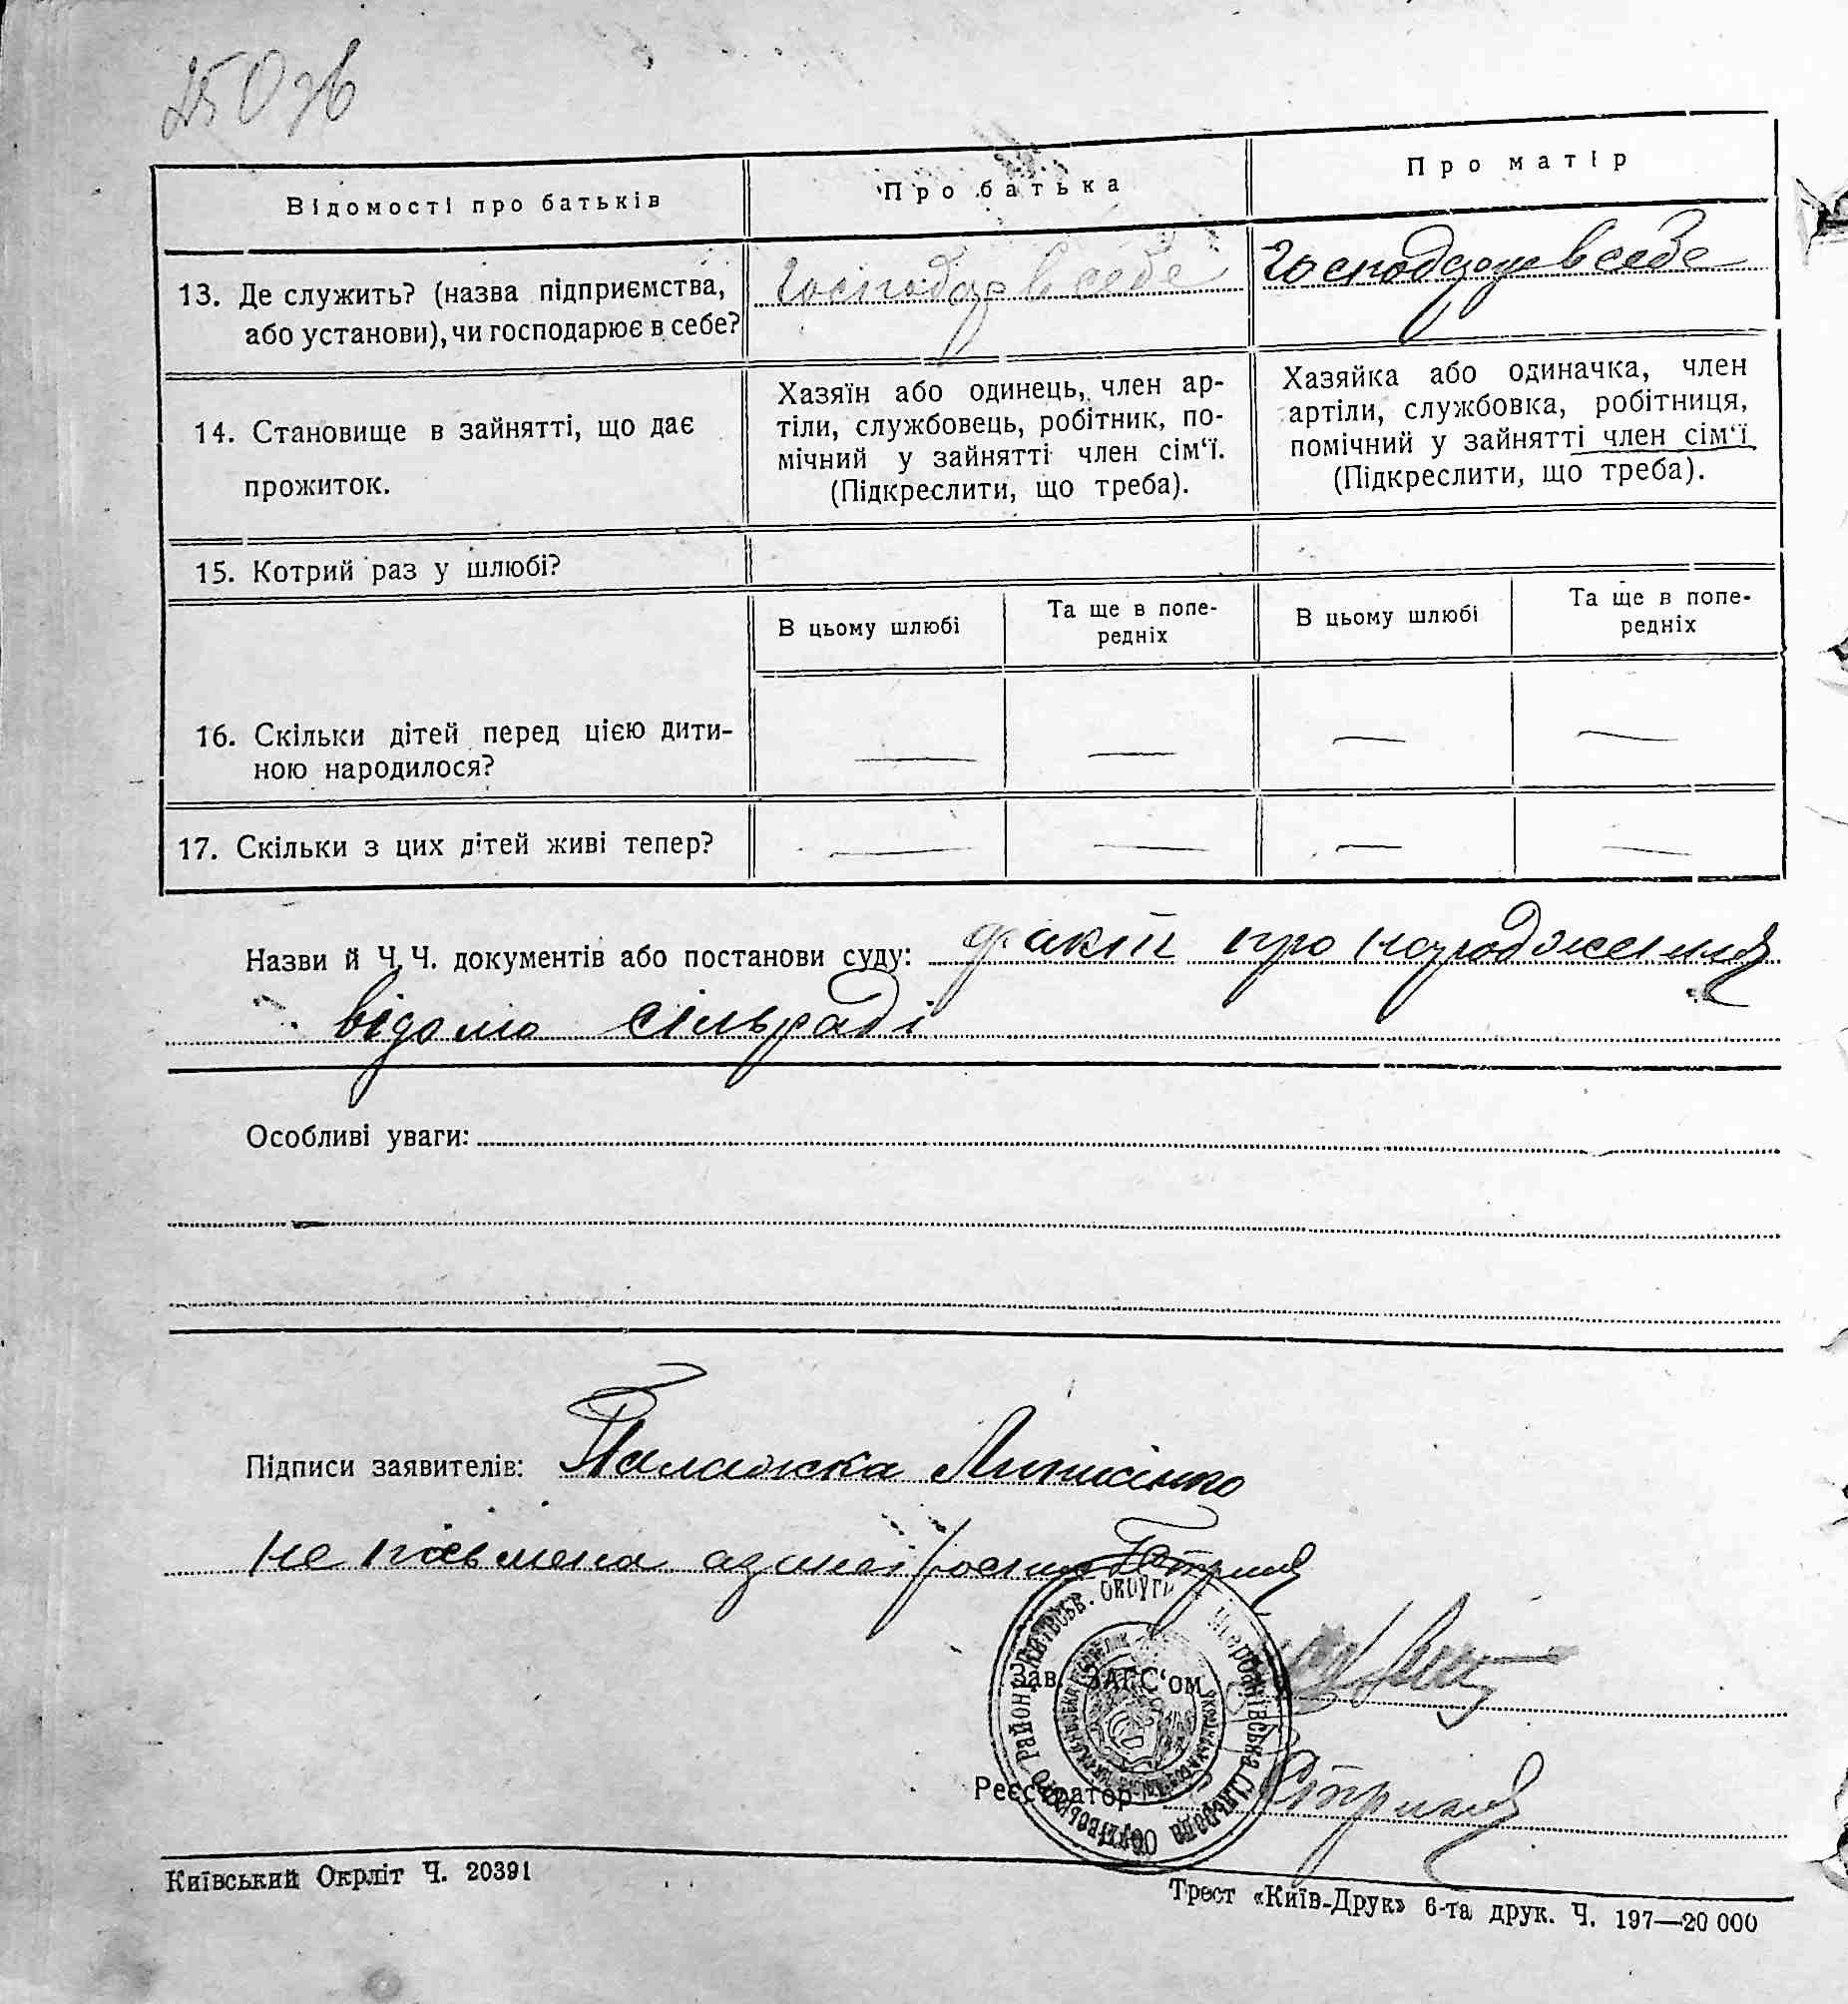 250 зв
Відомості про батьків
Про батька
Про матір
13. Де служить? (назва підприємства,
або установи), чи господарює в себе?
Господар в себе
Господарює в себе
14. Становище в зайнятті, що дає
прожиток.
Хазяїн або одинець, член ар-
тіли, службовець, робітник, по-
мічний у зайнятті член сім'ї.
(Підкреслити, що треба).
Хазяйка або одиначка, член
артіли, службовка, робітниця,
помічний у зайнятті член сім'ї
(Підкреслити, що треба).
15. Котрий раз у шлюбі?
В цьому шлюбі
Та ще в попе-
редніх
В цьому шлюбі
Та ще в попе-
редніх
16. Скільки дітей перед цією дити-
ною народилося?
— — — —
17. Скільки з цих дітей живі тепер?
— — — —
Назви й Ч. Ч. документів або постанови суду: факт про народження
відомо сільраді
Особливі уваги:
Підписи заявителів: Палажка
не письмена
Зав. ЗАГС'ом
Реєстратор
Київський Окрліт Ч. 20391
Трест «Київ-Друк» 6-та друк. Ч. 197—20 000